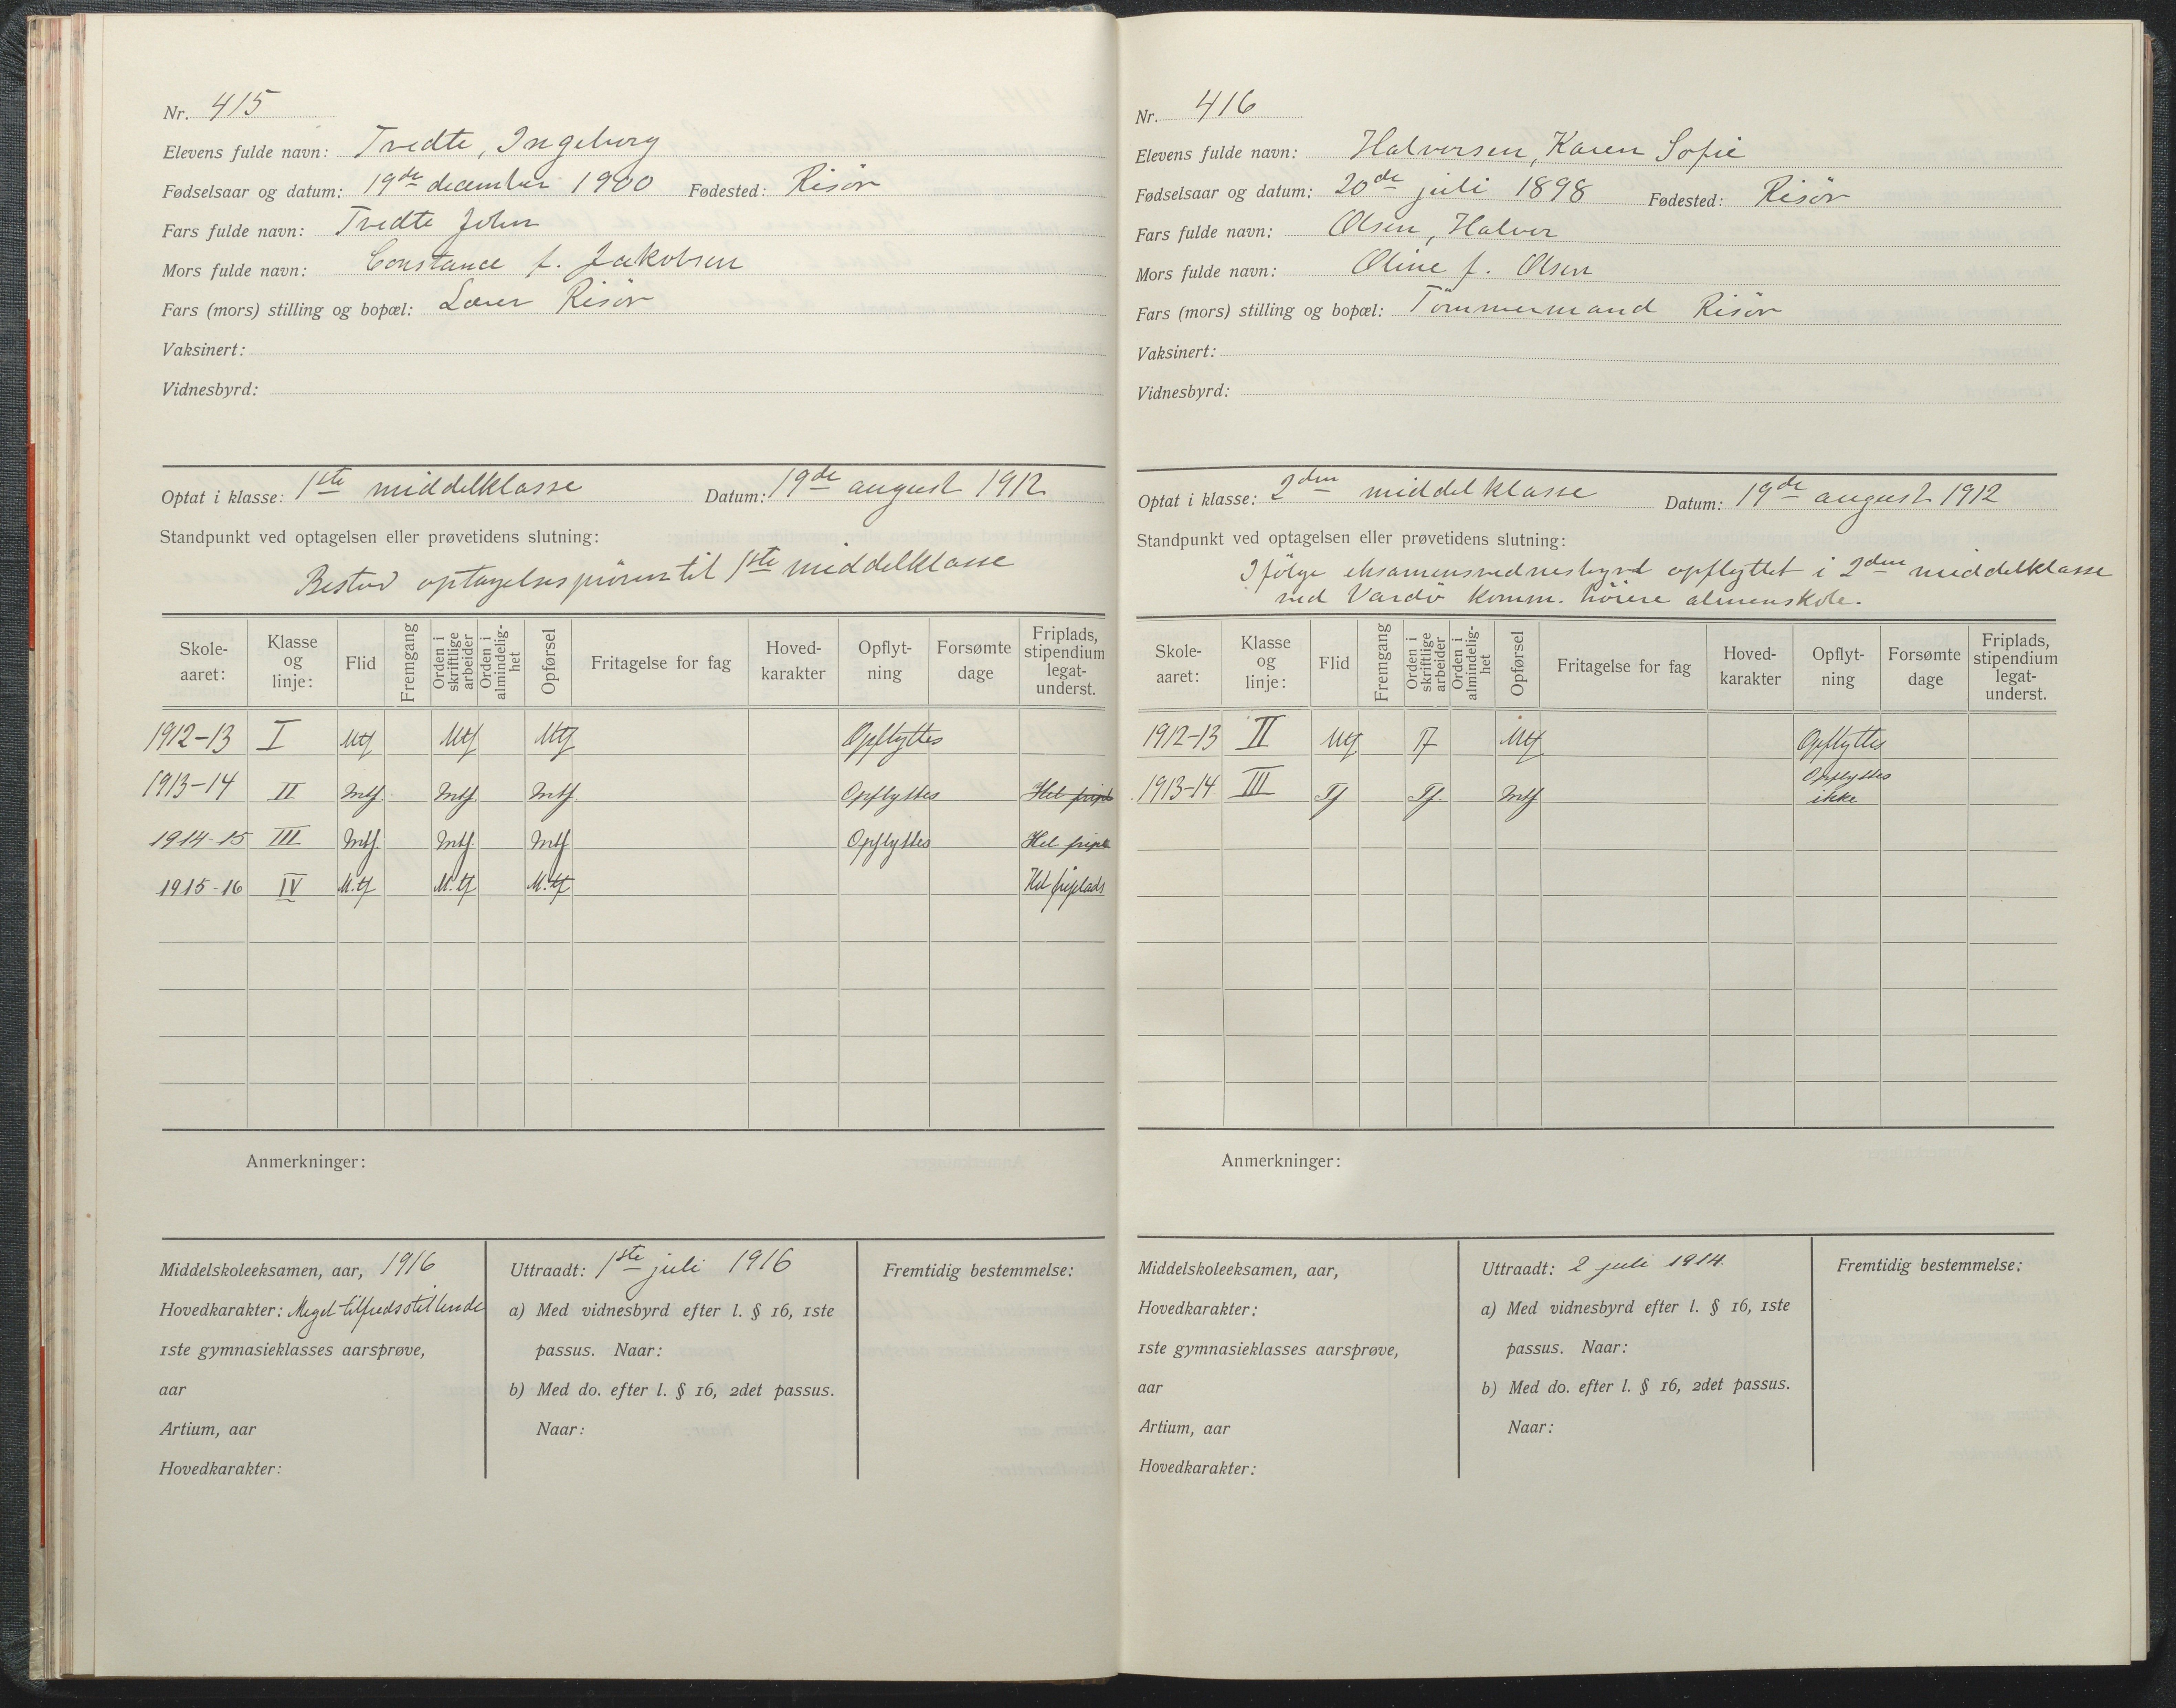 Nr. 415
Elevens fulde navn: Tvedte, Ingeborg
Fødselsaar og datum: 19de december 1900 Fødested: Risör
Fars fulde navn: Tvedte John
Mors fulde navn: Constance f. Jakobsen
Fars (mors) stilling og bopæl: Lærer Risör
Vaksinert:
Vidnesbyrd:
Optat i klasse: 1ste middelklasse Datum: 19de august 1912
Standpunkt ved optagelsen eller prøvetidens slutning:
Bestod optagelsespröven til 1ste middelklasse
Skole-aaret: Klasse og linje: Flid Fremgang Orden i skriftlige arbeider Orden i almindelig-het Opførsel Fritagelse for fag Hoved-karakter Opflyt-ning Forsømte dage Friplads, stipendium legat-underst.
1912-13 I Mtf Mtf Mtf Opflyttes
1913-14 II Mtf. Mtf. Mtf. Opflyttes Hel fripl
1914-15 III Mtf. Mtf. Mtf Opflyttes Hel fripl
1915-16 IV M.tf M.tf M.tf Hel friplads
Anmerkninger:
Middelskoleeksamen, aar, 1916
Hovedkarakter: Meget tilfredsstillende
1ste gymnasieklasses aarsprøve,
aar
Artium, aar
Hovedkarakter:
Uttraadt: 1ste juli 1916
a) Med vidnesbyrd efter l. § 16, 1ste
passus. Naar:
b) Med do. efter l. § 16, 2det passus.
Naar:
Fremtidig bestemmelse:
Nr. 416
Elevens fulde navn: Halvorsen, Karen Sofie
Fødselsaar og datum: 20de juli 1898 Fødested: Risör
Fars fulde navn: Olsen, Halvor
Mors fulde navn: Oline f. Olsen
Fars (mors) stilling og bopæl: Tömmermand Risör
Vaksinert:
Vidnesbyrd:
Optat i klasse: 2den middelklasse Datum: 19de august 1912
Standpunkt ved optagelsen eller prøvetidens slutning:
Ifölge eksamensvidnesbyrd opflyttet i 2den middelklasse
ved Vardö komm. höiere almenskole.
Skole-aaret: Klasse og linje: Flid Fremgang Orden i skriftlige arbeider Orden i almindelig-het Opførsel Fritagelse for fag Hoved-karakter Opflyt-ning Forsømte dage Friplads, stipendium legat-underst.
1912-13 II Mtf Tf Mtf Opflyttes
1913-14 III Tf Tf. Mtf Opflyttes
ikke
Anmerkninger:
Middelskoleeksamen, aar,
Hovedkarakter:
1ste gymnasieklasses aarsprøve,
aar
Artium, aar
Hovedkarakter:
Uttraadt: 2 juli 1914.
a) Med vidnesbyrd efter l. § 16, 1ste
passus. Naar:
b) Med do. efter l. § 16, 2det passus.
Naar:
Fremtidig bestemmelse: